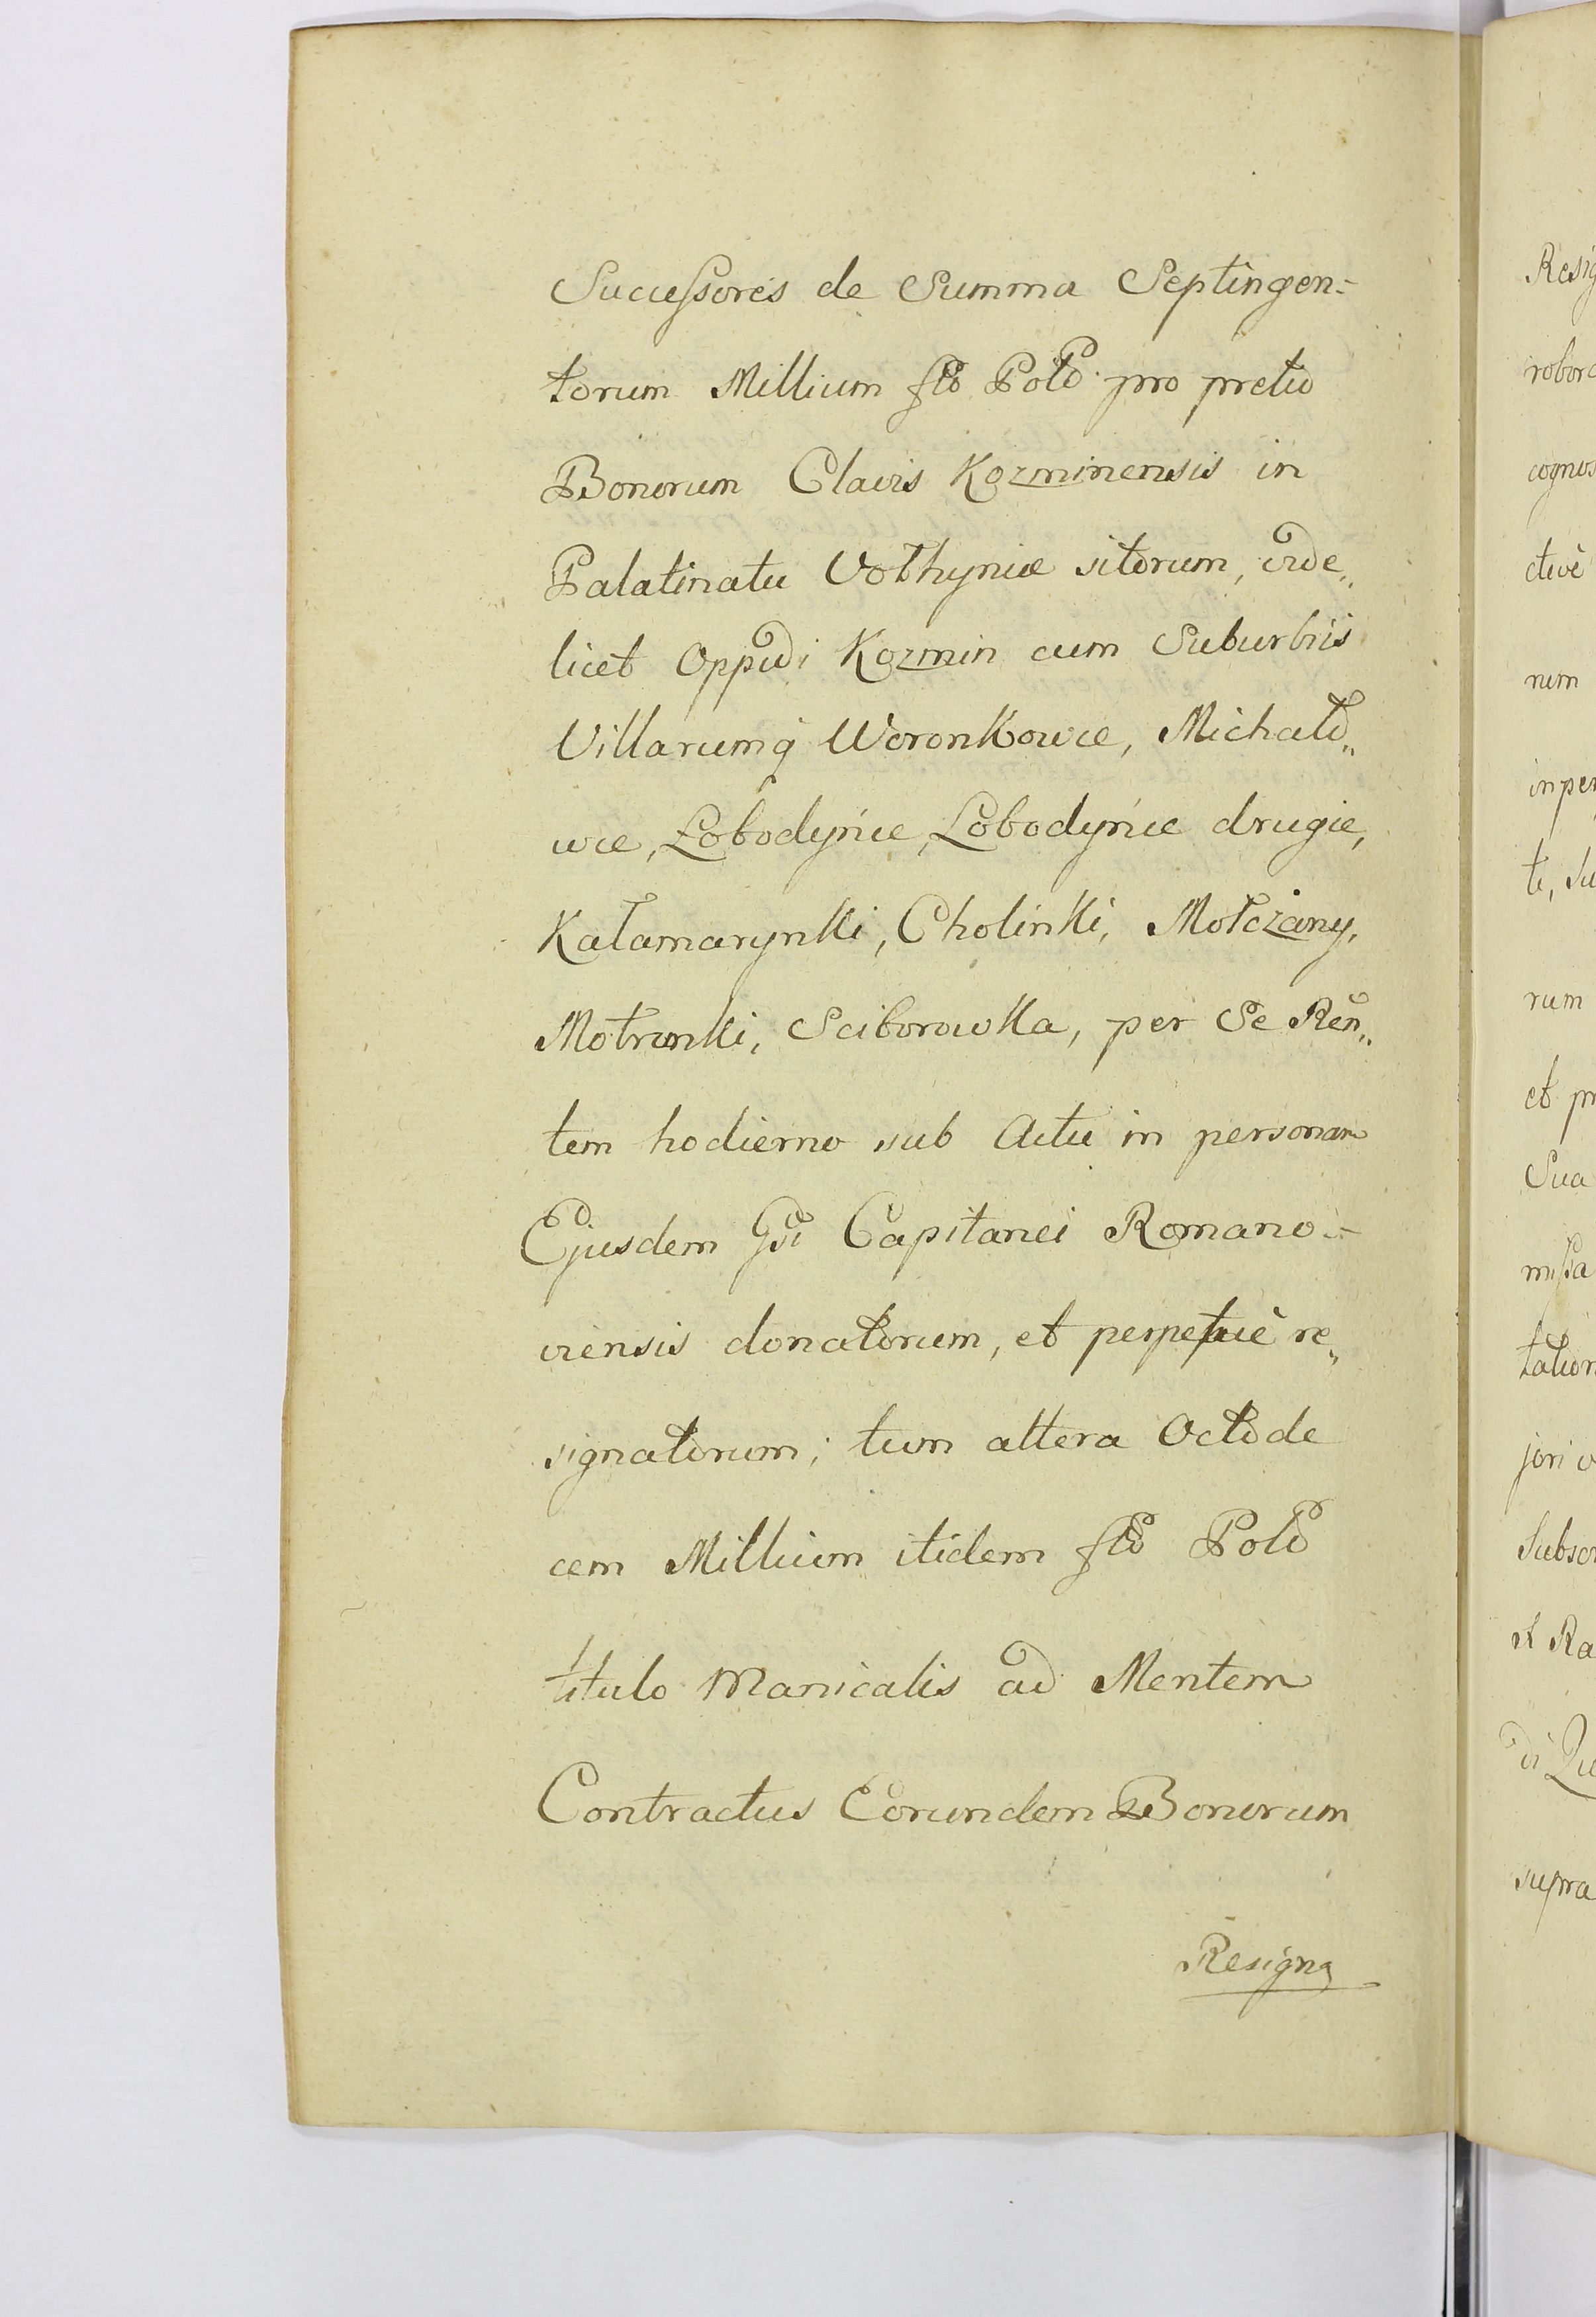 Successores de Summa Septingen=
torum Millium flo Polo. pro pretio
Bonorum Clavis Kozminensis in
Palatinatu Vołhyniæ sitorum, vide„
licet Oppidi Kozmin cum Suburbiis
Villarumq Woronkowce, Michało„
wce, Łobodyńce, Łobodyńce drugie,
Kałamarynki, Cholinki, Mołczany,
Motrunki, Sciborowka, per Se Ren„
tem hodierno sub Actu in personam
Ejusdem Gsi Capitanei Romano=
viensis donatorum, et perpetuè re„
signatorum; tum altera Octode
cem Millium itidem flo Polo
titulo Manicalis ad Mentem
Contractus Eorundem Bonorum
Resigna
Resig
robora
cognos
ctivè
num
inper
te, su
rum
et pr
Sua
missa
tation
jori v
Subscr
et Ra
di Qu
supra